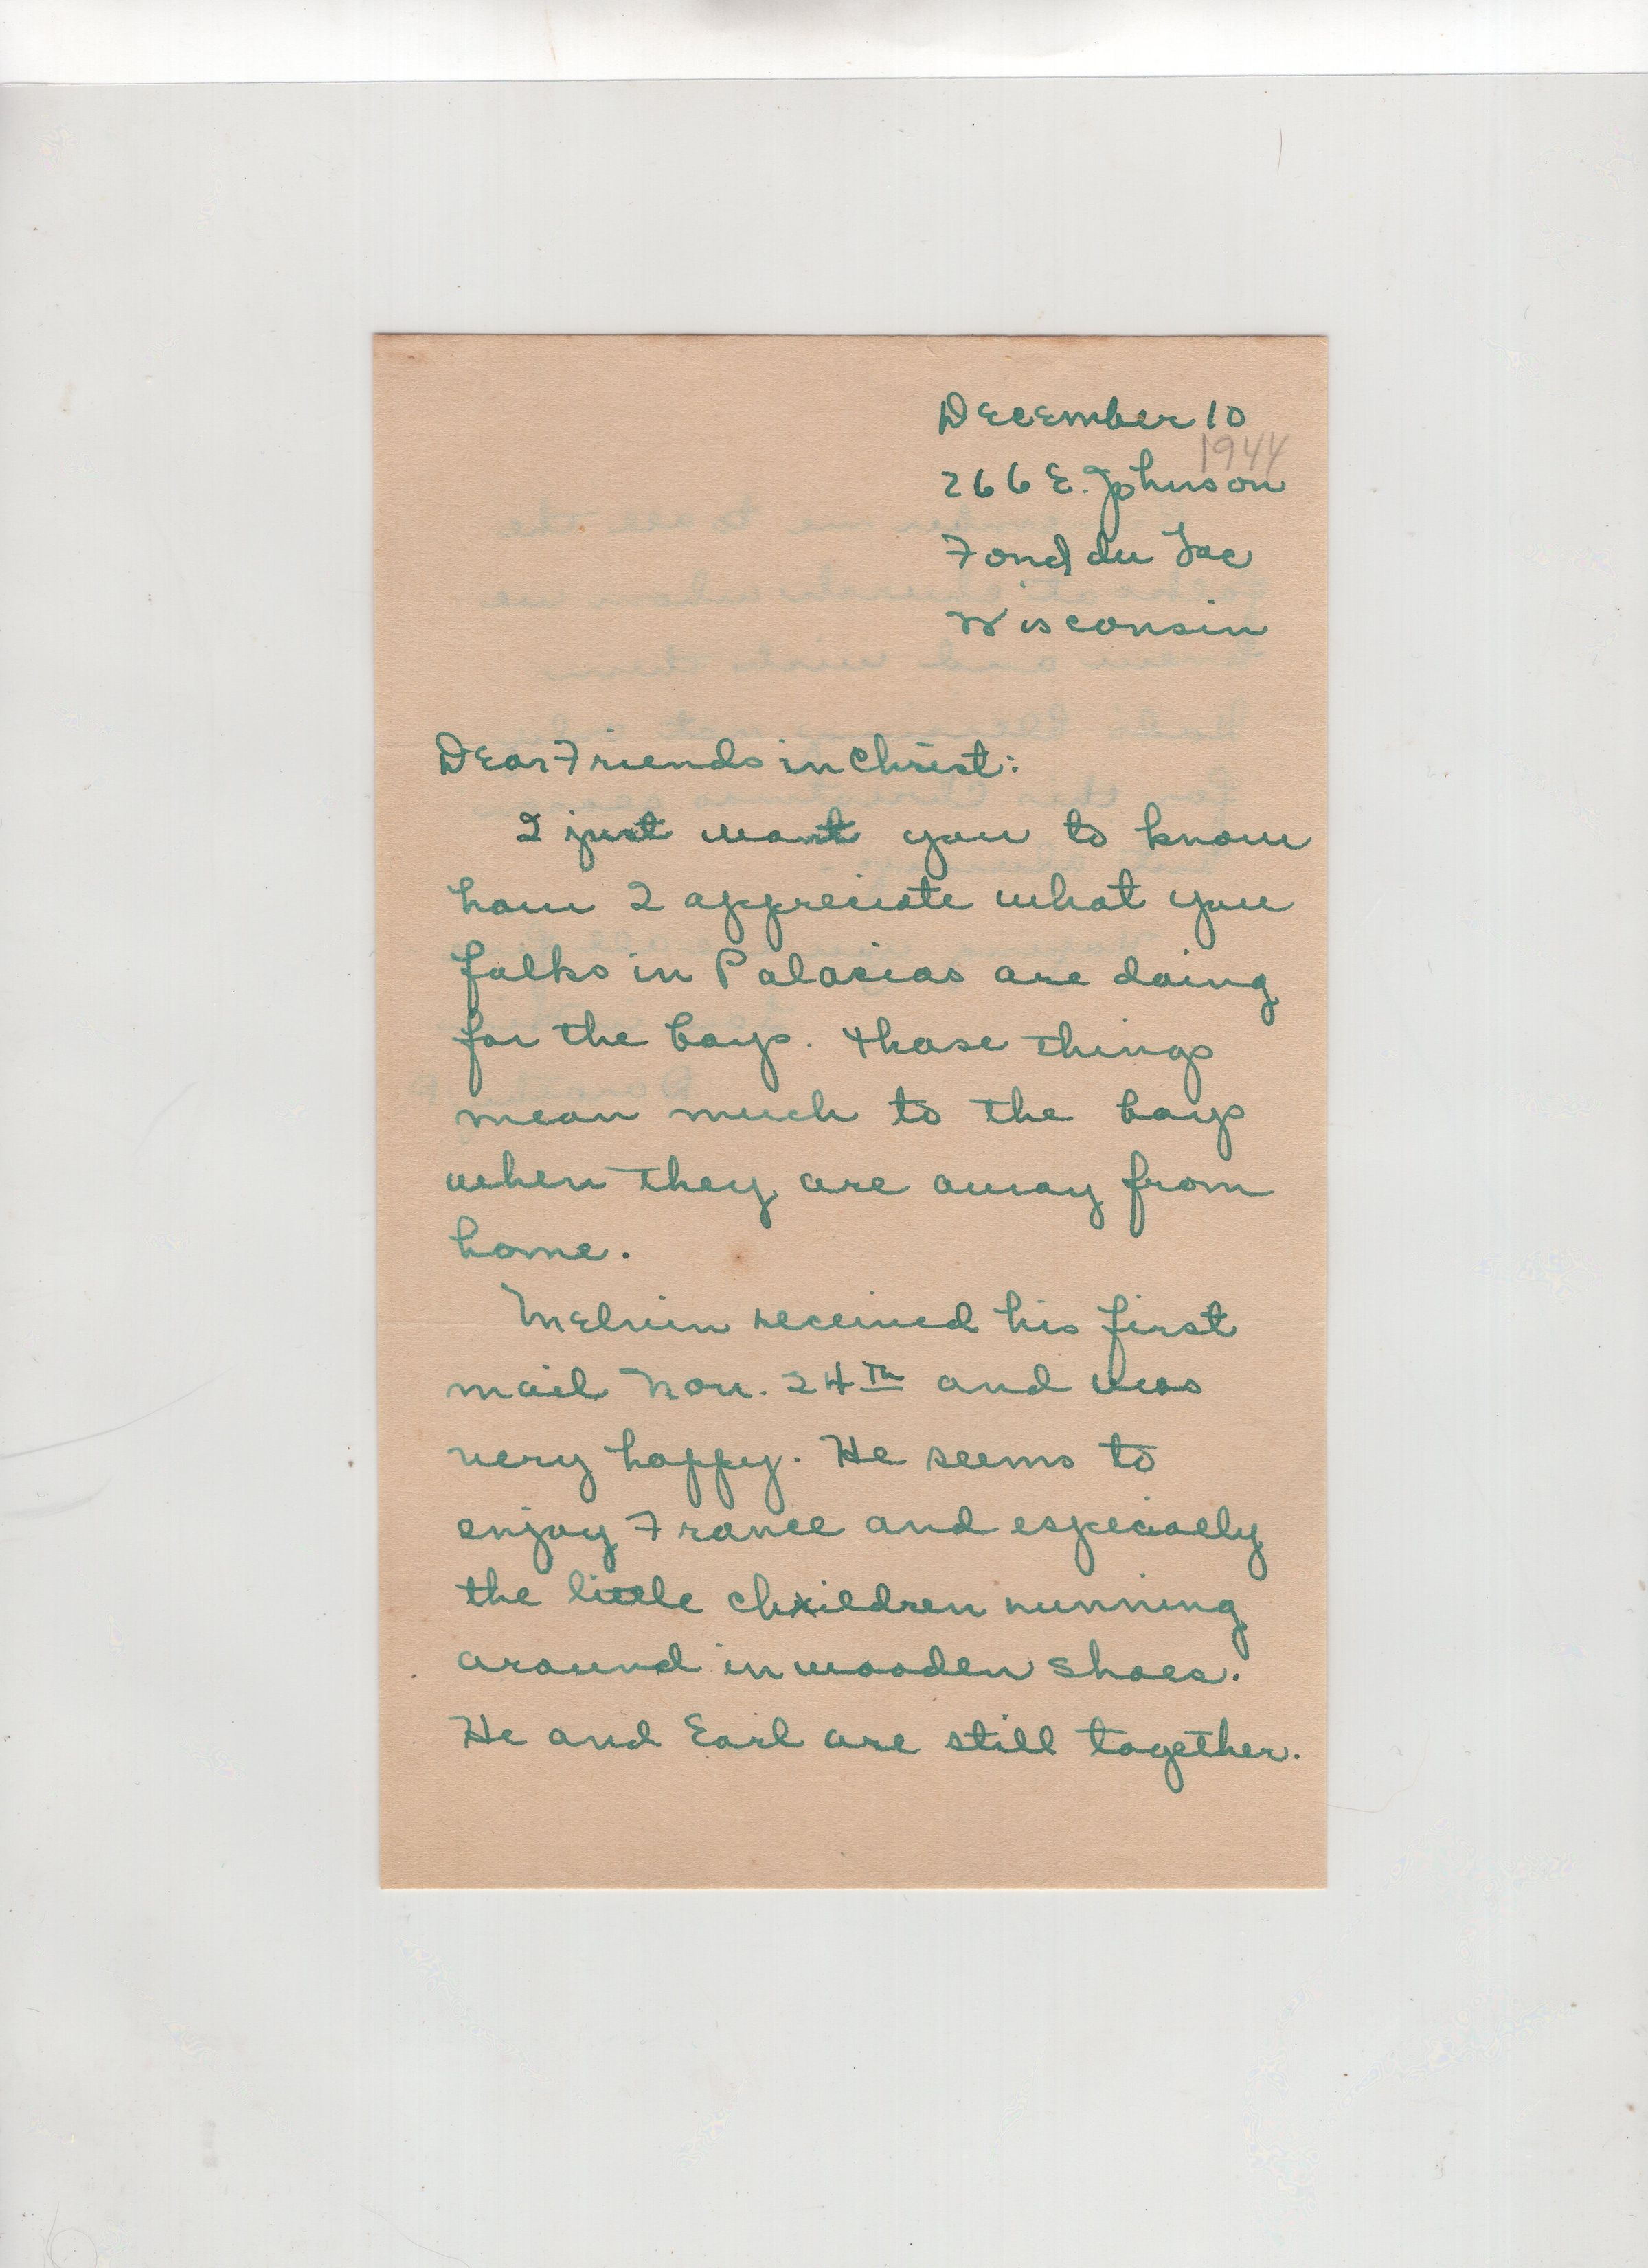 December 10
1944
266 E. Johnson
Fond du Lac
Wisconsin
Dear Friends in Christ:
I just want you to know
how I appreciate what you
folks in Palacios are doing
for the boys. Those things
mean much to the boys
when they are away from
home.
Melvin received his first
mail Nov. 24th and was
very happy. He seems to
enjoy France and especially
the little children running
around in wooden shoes.
He and Earl are still together.